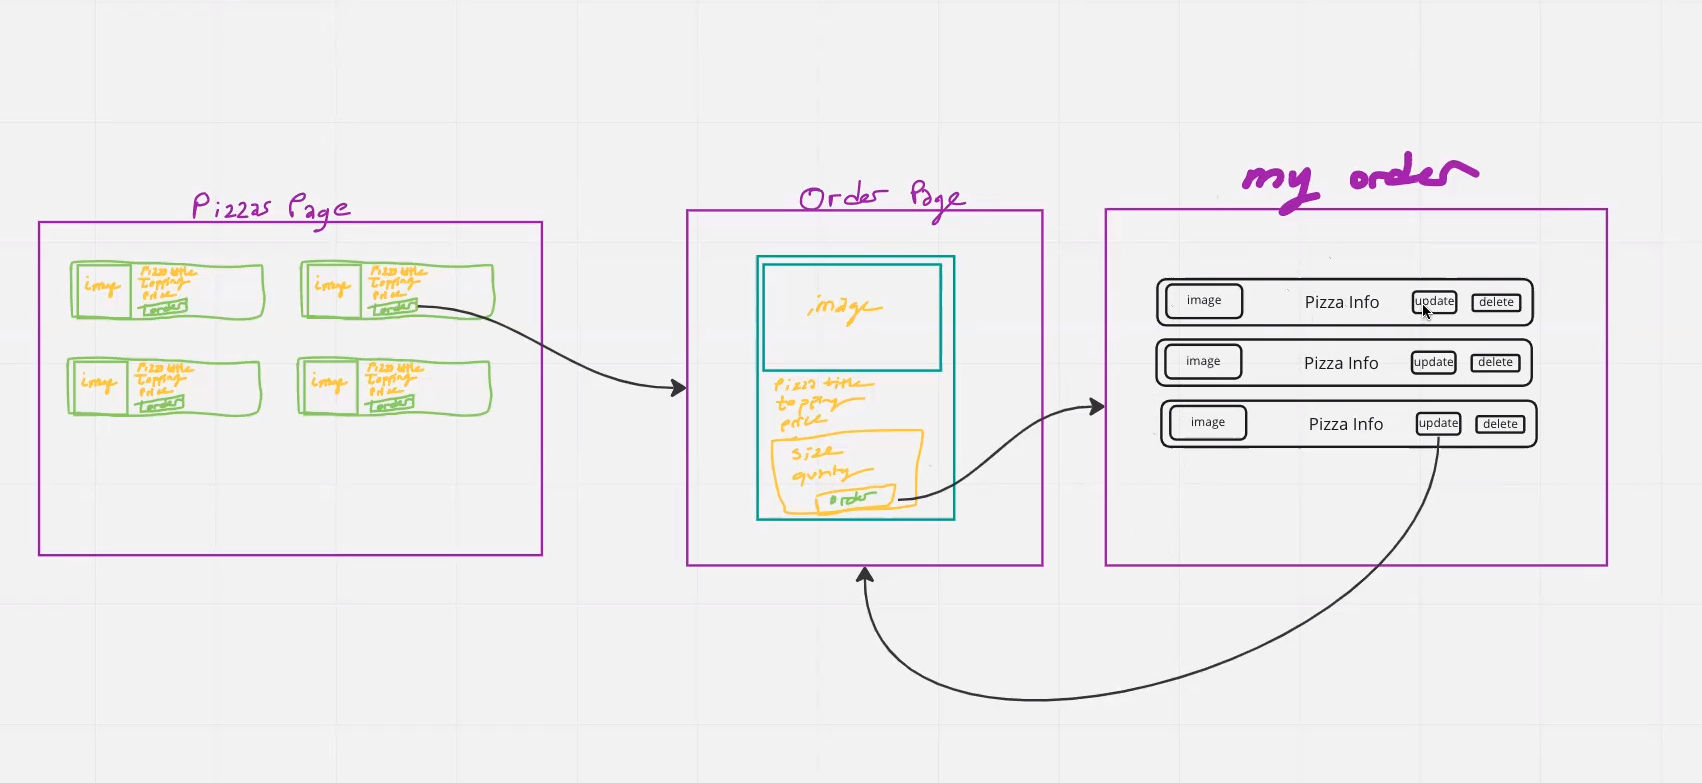 Pizzas Page
image
Pizza title
Topping
Price
order
image
Pizza title
Topping
Price
order
image
Pizza title
Topping
Price
order
image
Pizza title
Topping
Price
order
Order Page
image
Pizza title
topping
price
size
order
my order
image
Pizza Info
update
delete
image
Pizza Info
update
delete
image
Pizza Info
update
delete